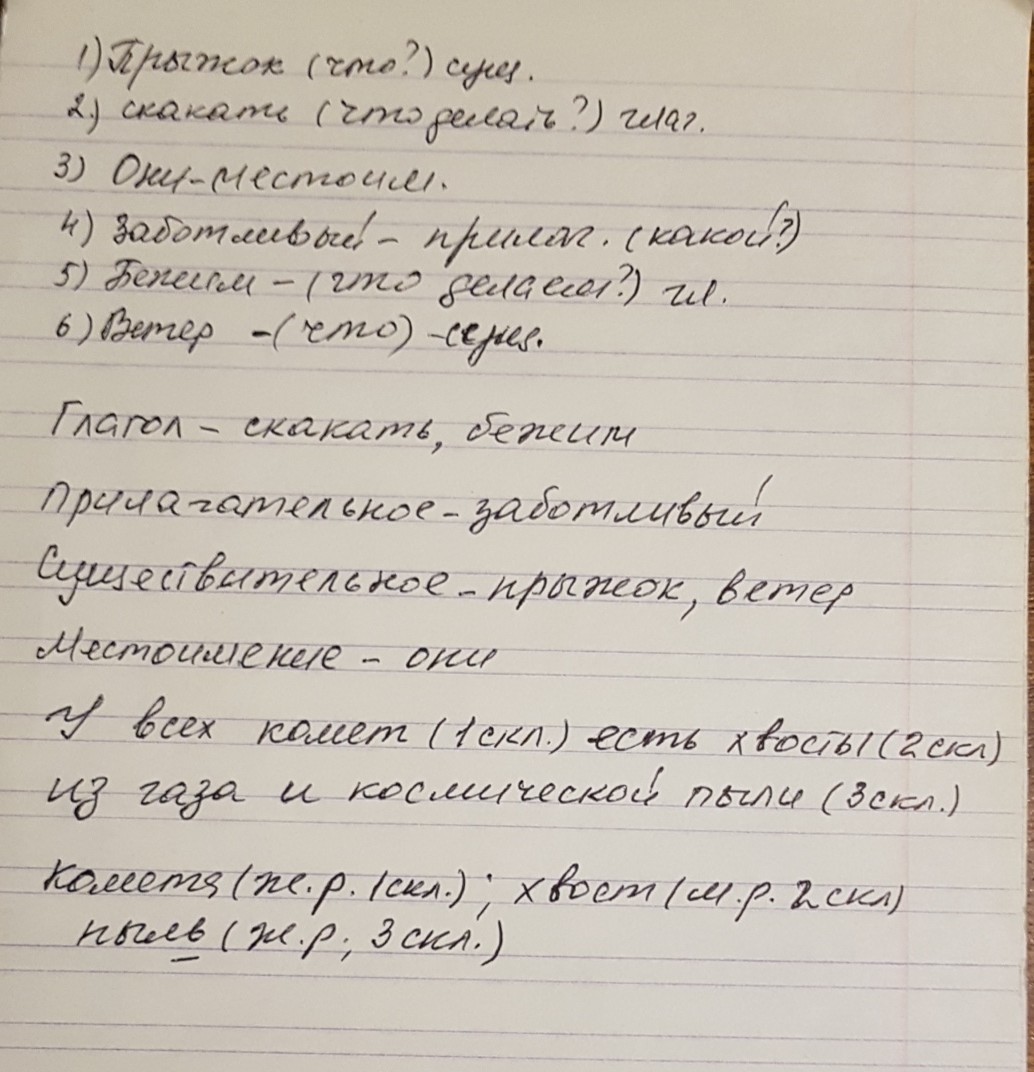 1) Прыжок (что?) сущ.
2.) скакать (что делать?) глаг.
3) Они-местоим.
4) Заботливый - прилаг. (какой?)
5) Бежим - (что делаем?) гл.
6) Ветер - (что) - сущ.
Глагол - скакать, бежим
Прилагательное - заботливый
Существительное - прыжок, ветер
Местоимение - они
У всех комет (1 скл.) есть хвосты (2 скл)
из газа и космической пыли (3 скл.)
Комета (ж.р. 1скл.); хвост (м.р. 2 скл)
пыль (ж.р; 3 скл.)